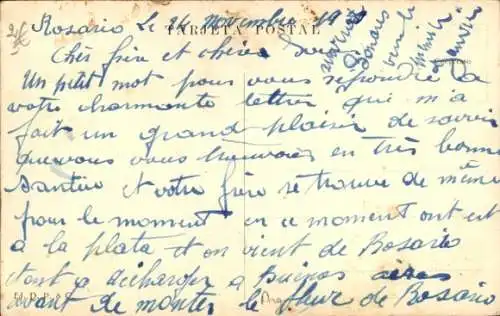 Rosario le 24 Novembre 19
TARJETA POSTAL
Cher frère et chère
Un petit mot pour vous répondre a
votre charmante lettre qui m'a
fait un grand plaisir de savoir
que vous vous trouvais en très bonne
Santée et votre frère se trouve de même
pour le moment en ce moment ont est
a la plata et on vient de Rosario
dont a décharger a Buenos aires
avant de monter le fleuve de Rosario